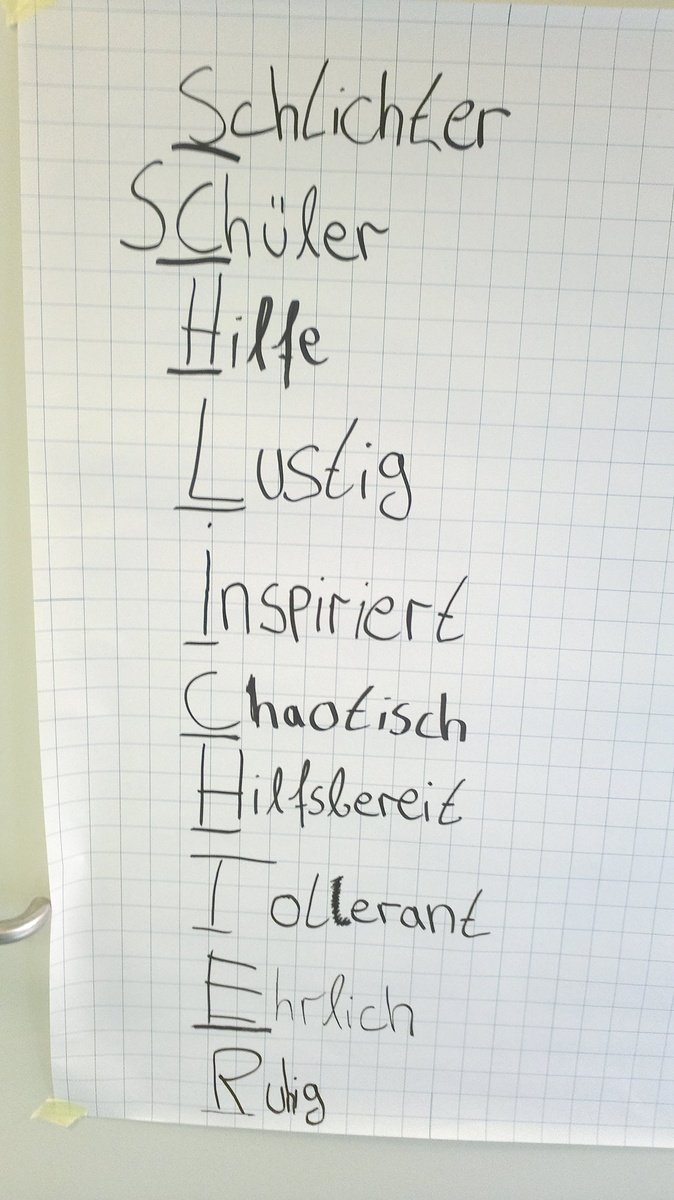 Schlichter
SChüler
Hilfe
Lustig
Inspiriert
Chaotisch
Hilfsbereit
Tollerant
Ehrlich
Ruhig